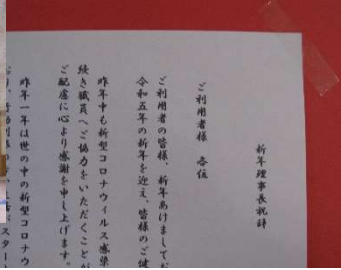 新年理事長祝辞
ご利用者様　各位
ご利用者の皆様、新年あけましてお
令和五年の新年を迎え、皆様のご健
昨年中も新型コロナウィルス感染
続き職員へご協力をいただくことが
ご配慮に心より感謝を申し上げます。
昨年一年は世の中の新型コロナウ